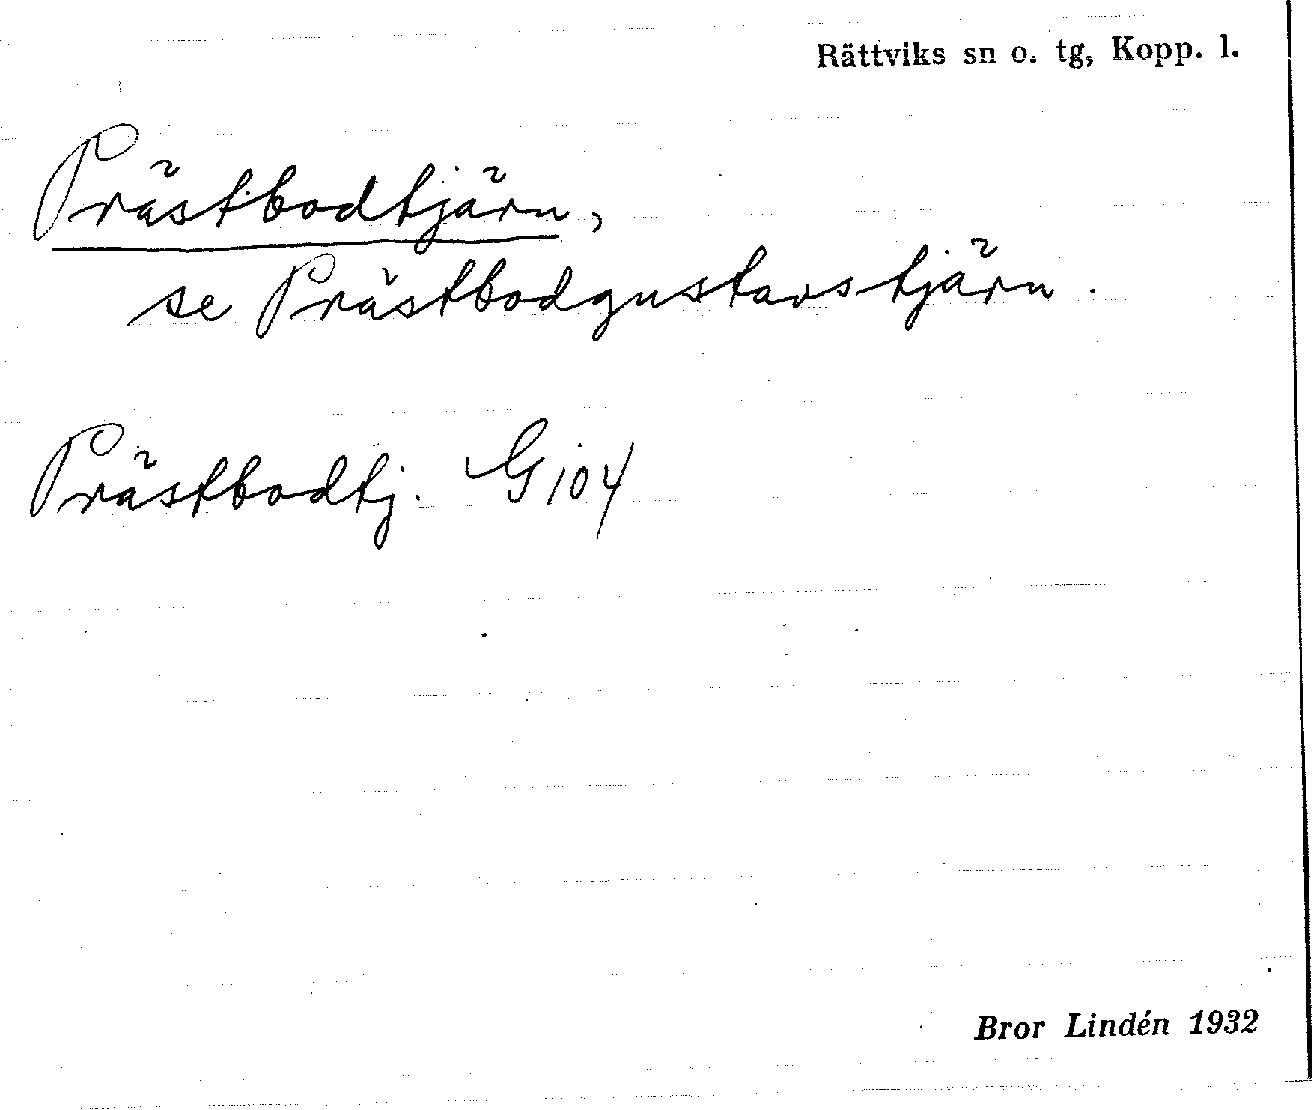 Rättviks sn o. tg, Kopp. l.
Prästbodtjärn,
se Prästbodgustavstjärn.
Prästbodtj. G104
Bror Lindén 1932